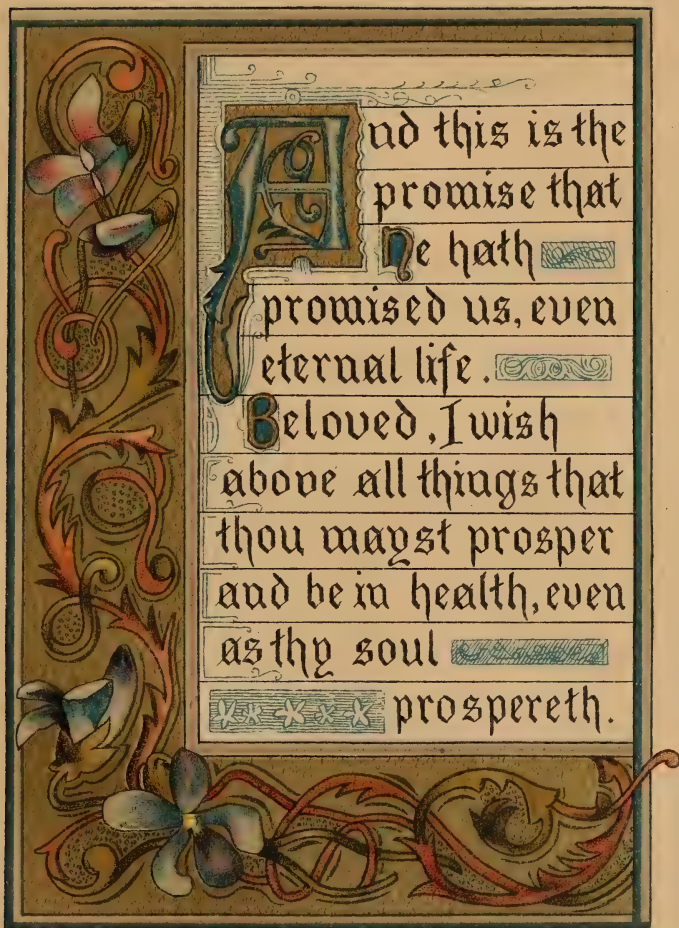 And this is the
promise that
He hath
promised us, even
eternal life.
Beloved, I wish
above all things that
thou mayst prosper
and be in health, even
as thy soul
prospereth.